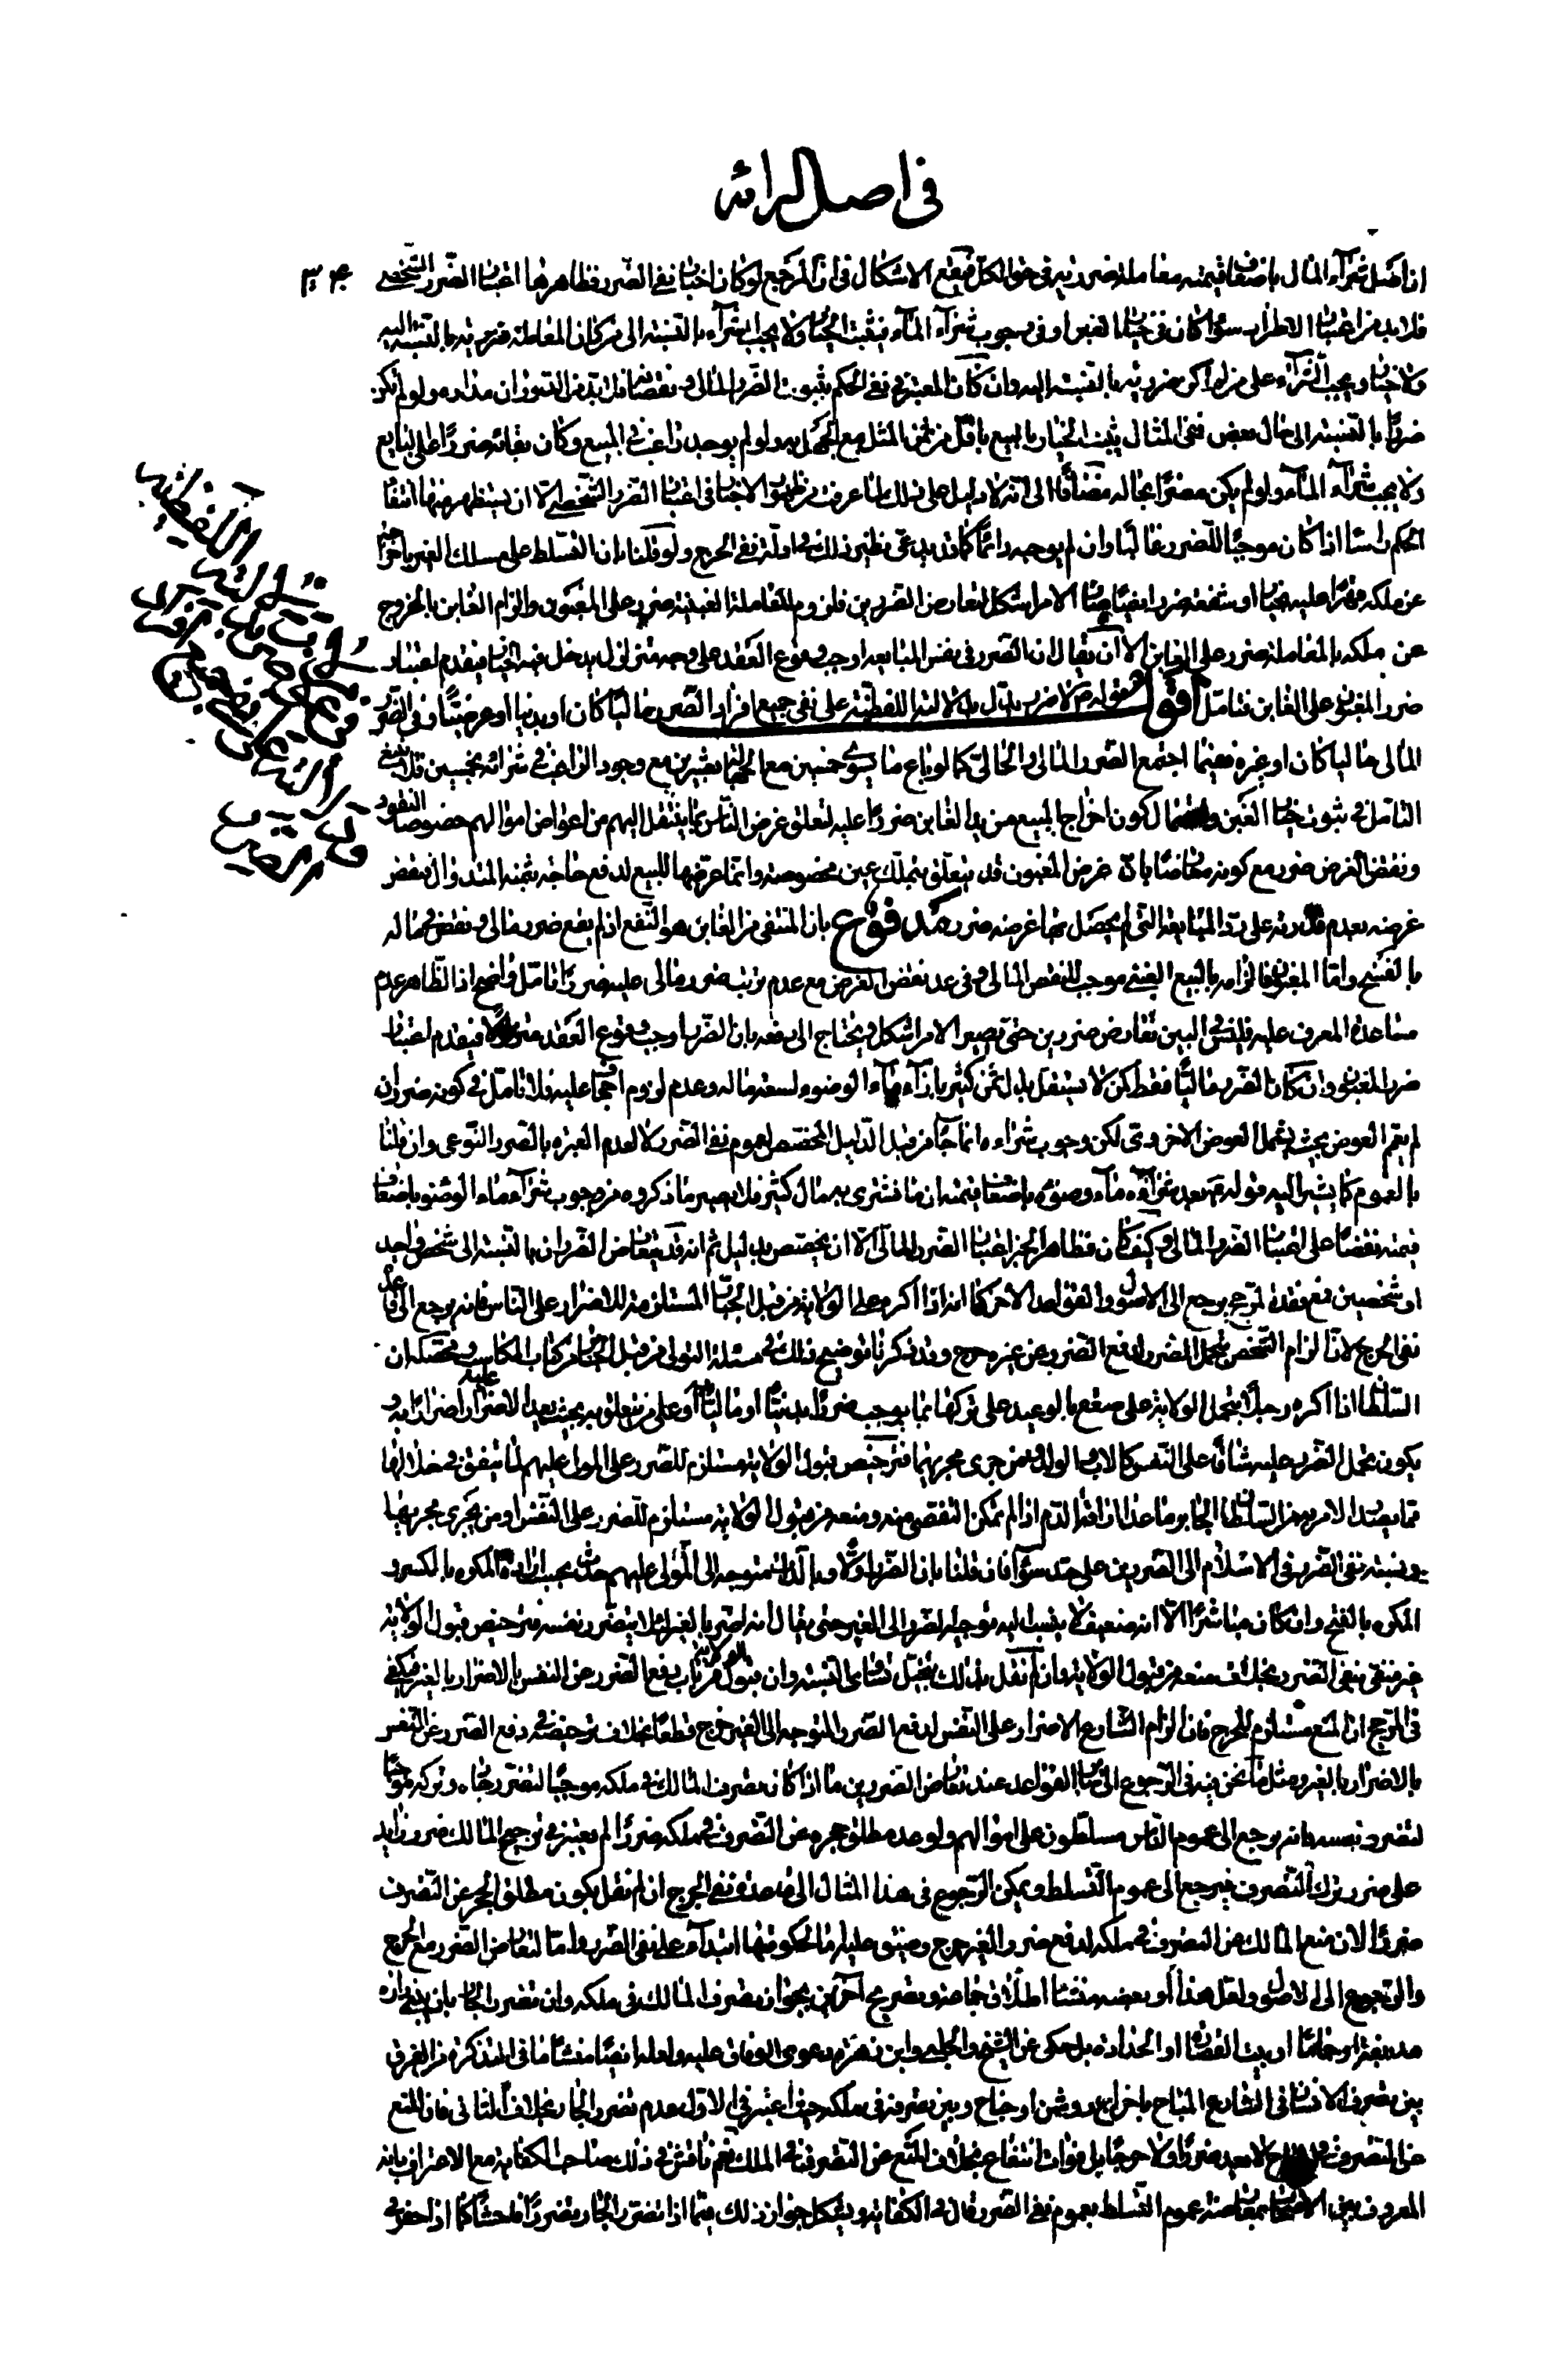 في اصل البرائه
۳۰۴
ان اصل شرآء المال باضعاف قيمته معاملة ضررية في حق الكل فيقع الاشكال في ان المرجع لو كان اخبار نفى الضرر فظاهرها اعتبار الضرر الشخصي
فلا بد من اعتبار الاطراد سوآء كان في خيار الغبن او في وجوب شرآء المآء فيثبت الخيار ولا يجب شرآء بالنسبة الى من كان المعاملة ضررية بالنسبة اليه
ولا خيار ويجب الشرآء على من لم اكن ضررية بالنسبة اليه وان كان المعتبر في نفى الحكم بثبوت الضرر المالى و نقصانه فلا بد من التزام ان مداره ولو لم تكن
ضررا بالنسبة الى حال بعض ففي المثال يثبت الخيار بالبيع باقل من ثمن المثل مع الجهل به ولو لم يوجد راغب في المبيع وكان بقائه ضررا على البايع
ولا يجب شرآء المآء ولو لم يكن مضرا بحاله مضافا الى انه لا دليل على ذلك لما عرفت من ظهور الاخبار في اعتبار الضرر الشخصي الا ان يستظهر منها انتفآء
الحكم راسا اذا كان موجبا للضرر غالبا وان لم يوجبه دائما كما قد يدعى نظير ذلك في ادلة نفى الحرج ولو قلنا بان التسلط على مسلك الغير باخراجه
عن ملكه قهرا عليه بخيار او شفعة ضرر ايضا صار الامر اشكل لتعارض الضررين فلزوم المعاملة الغبنية ضرر على المغبون والزام الغابن بالخروج
عن ملكه بالمعاملة ضرر على الغابن الا ان يقال ان الضرر في نفس المبايعة اوجب وقوع العقد على وجه متزلزل يدخل فيه الخيار فيقدم اعتبار
ضرر المغبون على الغابن فتامل اقول قوله ص لا ضرر يدل بدلالته اللفظية على نفى جميع افراد الضرر ماليا كان او بدنيا او عرضيا وفى الضرر
المالى حاليا كان او غيره فحيثما اجتمع الضرر المالى والحالى كما لو باع ما يسوى خمسين مع الجهل بعشرين مع وجود الراغب في شرائه بخمسين فلا ينبغى
التامل في ثبوت خيار الغبن واحتمال كون اخراج المبيع من يد الغابن ضررا عليه لتعلق غرض الناس بما ينتقل اليهم من اعواض اموالهم خصوصا النقود
ونقض الغرض ضرر مع كونه معارضا بان غرض المغبون قد يتعلق بتملك عين مخصوصة وانما عرضها للبيع لدفع حاجته بثمنه المتداول فنقض
غرضه بعدم قدرته على رد المبايعة التى لم يحصل بها غرضه ضرر مدفوع بان المنتفى من الغابن هو النفع اذ لم يقع ضرر مالى و نقص في ماله
بالفسخ واما المغبون فالزامه بالبيع الغبنى موجب للنقص المالى وفى عد نقض الغرض مع عدم ترتب ضرر مالى عليه ضررا تامل واضح اذ الظاهر عدم
مساعدة العرف عليه فليس في البين تعارض ضررين حتى يصير الامر اشكل ويحتاج الى دفعه بان الضرر اوجب وقوع العقد متزلزلا فيقدم اعتبار
ضرر المغبون وان كان الضرر ماليا فقط لكن لا يستقل بدل ثمن كثير بازآء مآء الوضوء لسعة ماله وعدم لزوم اجحاف عليه فلا تامل في كونه ضررا ان
لم يعم العوض بحيث يشمل العوض الاخروى لكن وجوب شراءه انما جآء من قبل الدليل المخصص لعموم نفى الضرر لا لعدم العبرة بالضرر النوعى وان قلنا
بالعموم كما يشير اليه قوله ع بعد شرآءه مآء وضوئه باضعاف قيمته ان ما تشترى به مال كثير فلا يصير ما ذكروه من وجوب شرآء ماء الوضوء باضعاف
قيمته نقضا على اعتبار الضرر المالى وكيف كان فظاهر الخبر اعتبار الضرر المالى الا ان يختص بدليل ثم انه قد يتعارض الضرران بالنسبة الى شخص واحد
او شخصين فمع فقد المرجح يرجع الى الاصول والقواعد الاخر كما انه اذا اكره على الولاية من قبل الجبار المستلزمة للاضرار على الناس فانه يرجع الى قاعدة
نفى الحرج لان الزام الشخص بتحمل الضرر لدفع الضرر عن غيره حرج وقد ذكرنا توضيح ذلك في مسئلة التولى من قبل الجائر من كتاب المكاسب ومحصله ان
السلطان اذا اكره رجلا بتحمل الولاية على صقع بالوعيد على تركها بما يوجب ضررا بدنيا او ماليا او على من يتعلق به بحيث يعد الاضرار عليه اضرارا به و
يكون تحمل الضرر عليه شاقا على النفس كالاب والولد ومن جرى مجريهما فترخيص قبول الولاية مستلزم للضرر على المولى عليهم لما يتفق في خلالها
مما يصدر الامر به من السلطان الجابر ما عدا اراقة الدم اذا لم تمكن التفصى منه ومنعه من قبول الولاية مستلزم للضرر على النفس او من يجرى مجريها
ونسبة نفى الضرر في الاسلام الى الضررين على حد سوآء فان قلنا بان الضرر اولا وبالذات متوجه الى المولى عليهم حيث يجب ارادة المكره بالكسر و
المكره بالفتح وان كان مباشرا الا انه ضعيف لا ينسب اليه توجيه الضرر الى الغير حتى يقال انه اضر بالغير لئلا يتضرر نفسه فترخيص قبول الولاية
غير منفى بنفى الضرر بخلاف منعه من قبول الولاية وان لم نقل بذلك بتخيل تساوى النسبة وان قبول الولاية من باب دفع الضرر عن النفس بالاضرار بالغير فيكفى
في الترجيح ان المنع مستلزم للحرج فان الزام الشارع الاضرار على النفس لدفع الضرر المتوجه الى الغير حرج قطعا بخلاف ترخيصه في دفع الضرر عن النفس
بالاضرار بالغير ومثل ما نحن فيه في الرجوع الى ساير القواعد عند تعارض الضررين ما اذا كان تصرف المالك في ملكه موجبا لتضرر جاره وتركه موجبا
لتضرر نفسه فانه يرجع الى عموم الناس مسلطون على اموالهم ولو عد مطلق حجره عن التصرف في ملكه ضررا لم يعتبر في ترجيح المالك ضرر زايد
على ضرر ترك التصرف فيرجع الى عموم التسلط ويمكن الرجوع في هذا المثال الى قاعدة نفى الحرج ان لم نقل بكون مطلق الحجر عن التصرف
ضررا لان منع المالك عن التصرف في ملكه لدفع ضرر الغير حرج وضيق عليه اما لحكومتها ابتدآء على نفى الضرر واما لتعارض الضرر مع الحرج
والرجوع الى الاصول ولعل هذا او بعضه منشئا اطلاق جماعة وتصريح اخرين بجواز تصرف المالك في ملكه وان تضرر الجار بان يبنى داره
مدبغة او حماما او بيت القصارة او الحدادة بل حكى عن الشيخ والحلبى وابن زهرة دعوى الوفاق عليه ولعله ايضا منشأ ما في التذكرة من الفرق
بين تصرف الانسان في الشارع المباح باخراج روشن او جناح وبين تصرفه في ملكه حيث اعتبر في الاول عدم تضرر الجار بخلاف الثانى فان المنع
عن التصرف في المباح لا يعد ضررا ولا حرجا بل فوات انتفاع بخلاف المنع عن التصرف في الملك نعم ناقش في ذلك صاحب الكفاية مع الاعتراف بانه
المعروف بين الاصحاب بمعارضة عموم التسلط بعموم نفى الضرر قال في الكفاية ويشكل جواز ذلك فيما اذا تضرر الجار تضررا فاحشا كما اذا حفر في